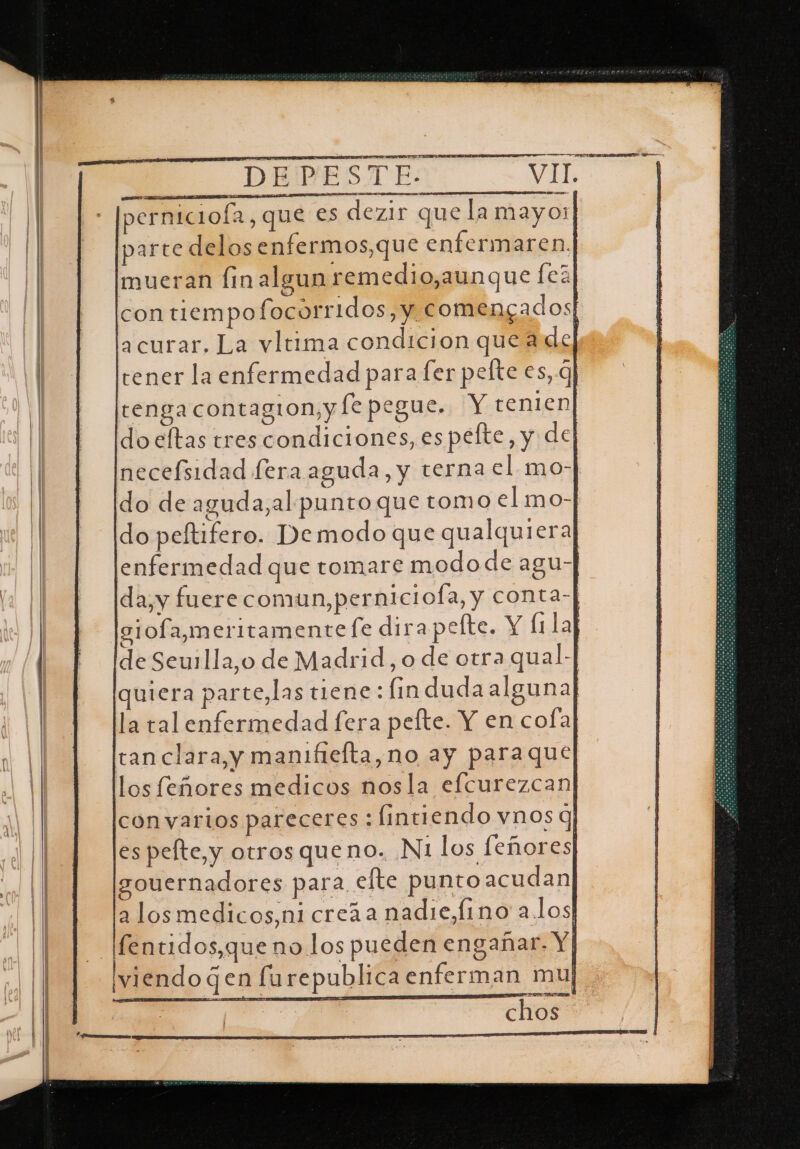 DE PESTE. VII.
perniciosa, que es dezir que la mayor
parte delos enfermos,que enfermaren.
mueran ſin algun remedio,aunque ſeã
con tiempo ſocorridos, y començados
a curar. La vltima condicion que a de
tener la enfermedad para ſer peſte es, q̃
tenga contagion,y ſe pegue. Y tenien
do eſtas tres condiciones, es peſte, y de
neceſsidad ſera aguda, y terna el mo-
do de aguda,al punto que tomo el mo-
do peſtifero. De modo que qualquiera
enfermedad que tomare modo de agu-
da,y fuere comun,pernicioſa, y conta-
gioſa,meritamente ſe dira peſte. Y ſi la
de Seuilla,o de Madrid, o de otra qual-
quiera parte,las tiene : ſin duda alguna
la tal enfermedad ſera peſte. Y en coſa
tan clara,y manifieſta, no ay para que
los ſeñores medicos nos la eſcurezcan
con varios pareceres : ſintiendo vnos q̃
es peſte,y otros que no. Ni los ſeñores
gouernadores para eſte punto acudan
a los medicos,ni creã a nadie,ſino a los
ſentidos,que no los pueden engañar. Y
viendo q̃ en ſu republica enferman mu
chos